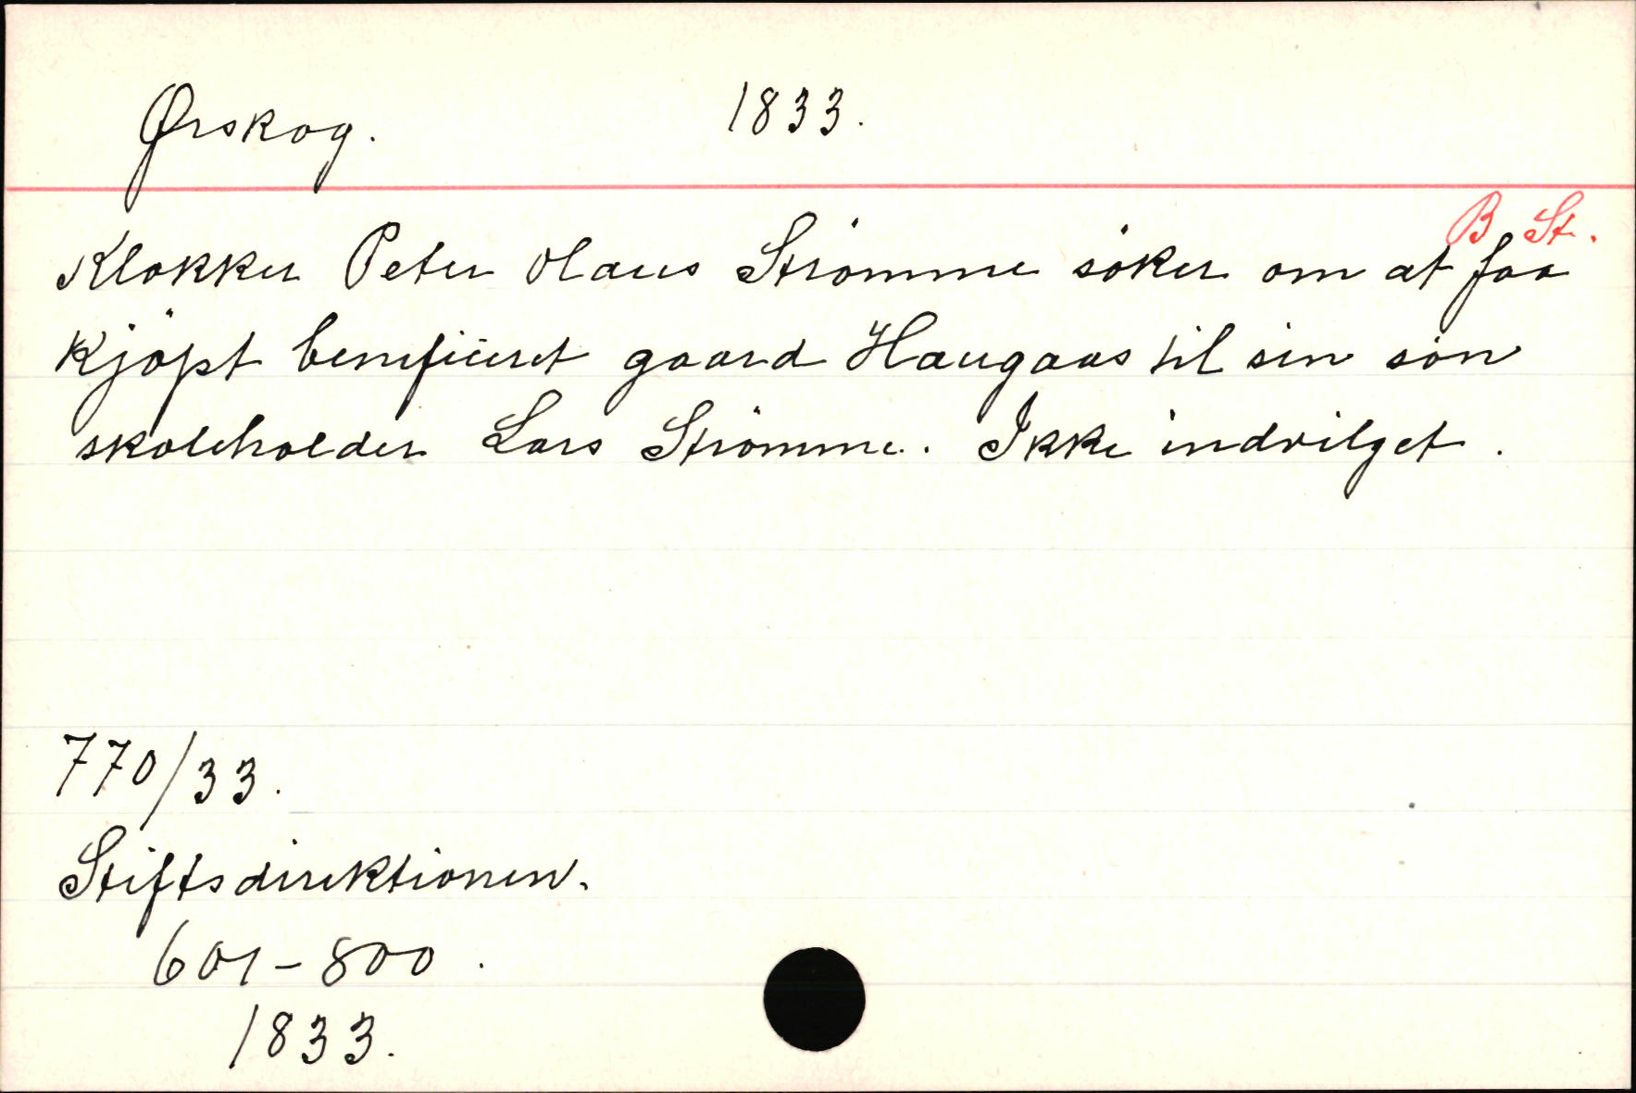 Ørskog. 1833.
B St.
Klokker Peter Olaus Strömme söker om at faa
kjöpt beneficeret gaard Haugaas til sin sön
skoleholder Lars Strömme. Ikke indvilget.
770/33.
Stiftsdirektionen.
601-800.
1833.